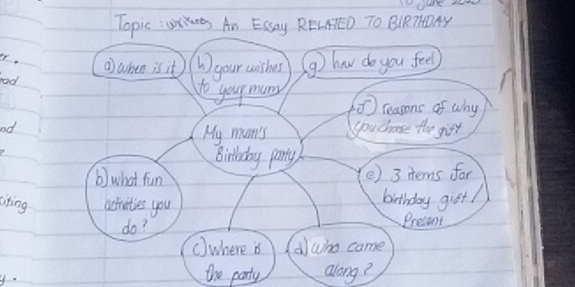 June
Topic: writing AN ESSAY RELATED TO BIRTHDAY
a) when is it
h) your wishes
to your mum
g) how do you feel
f) reasons of why
you chose the gift
My mum's
Birthday party
b) what fun
activities you
do?
e) 3 items for
birthday gift /
Present
c) where is
the party
d) who came
along?